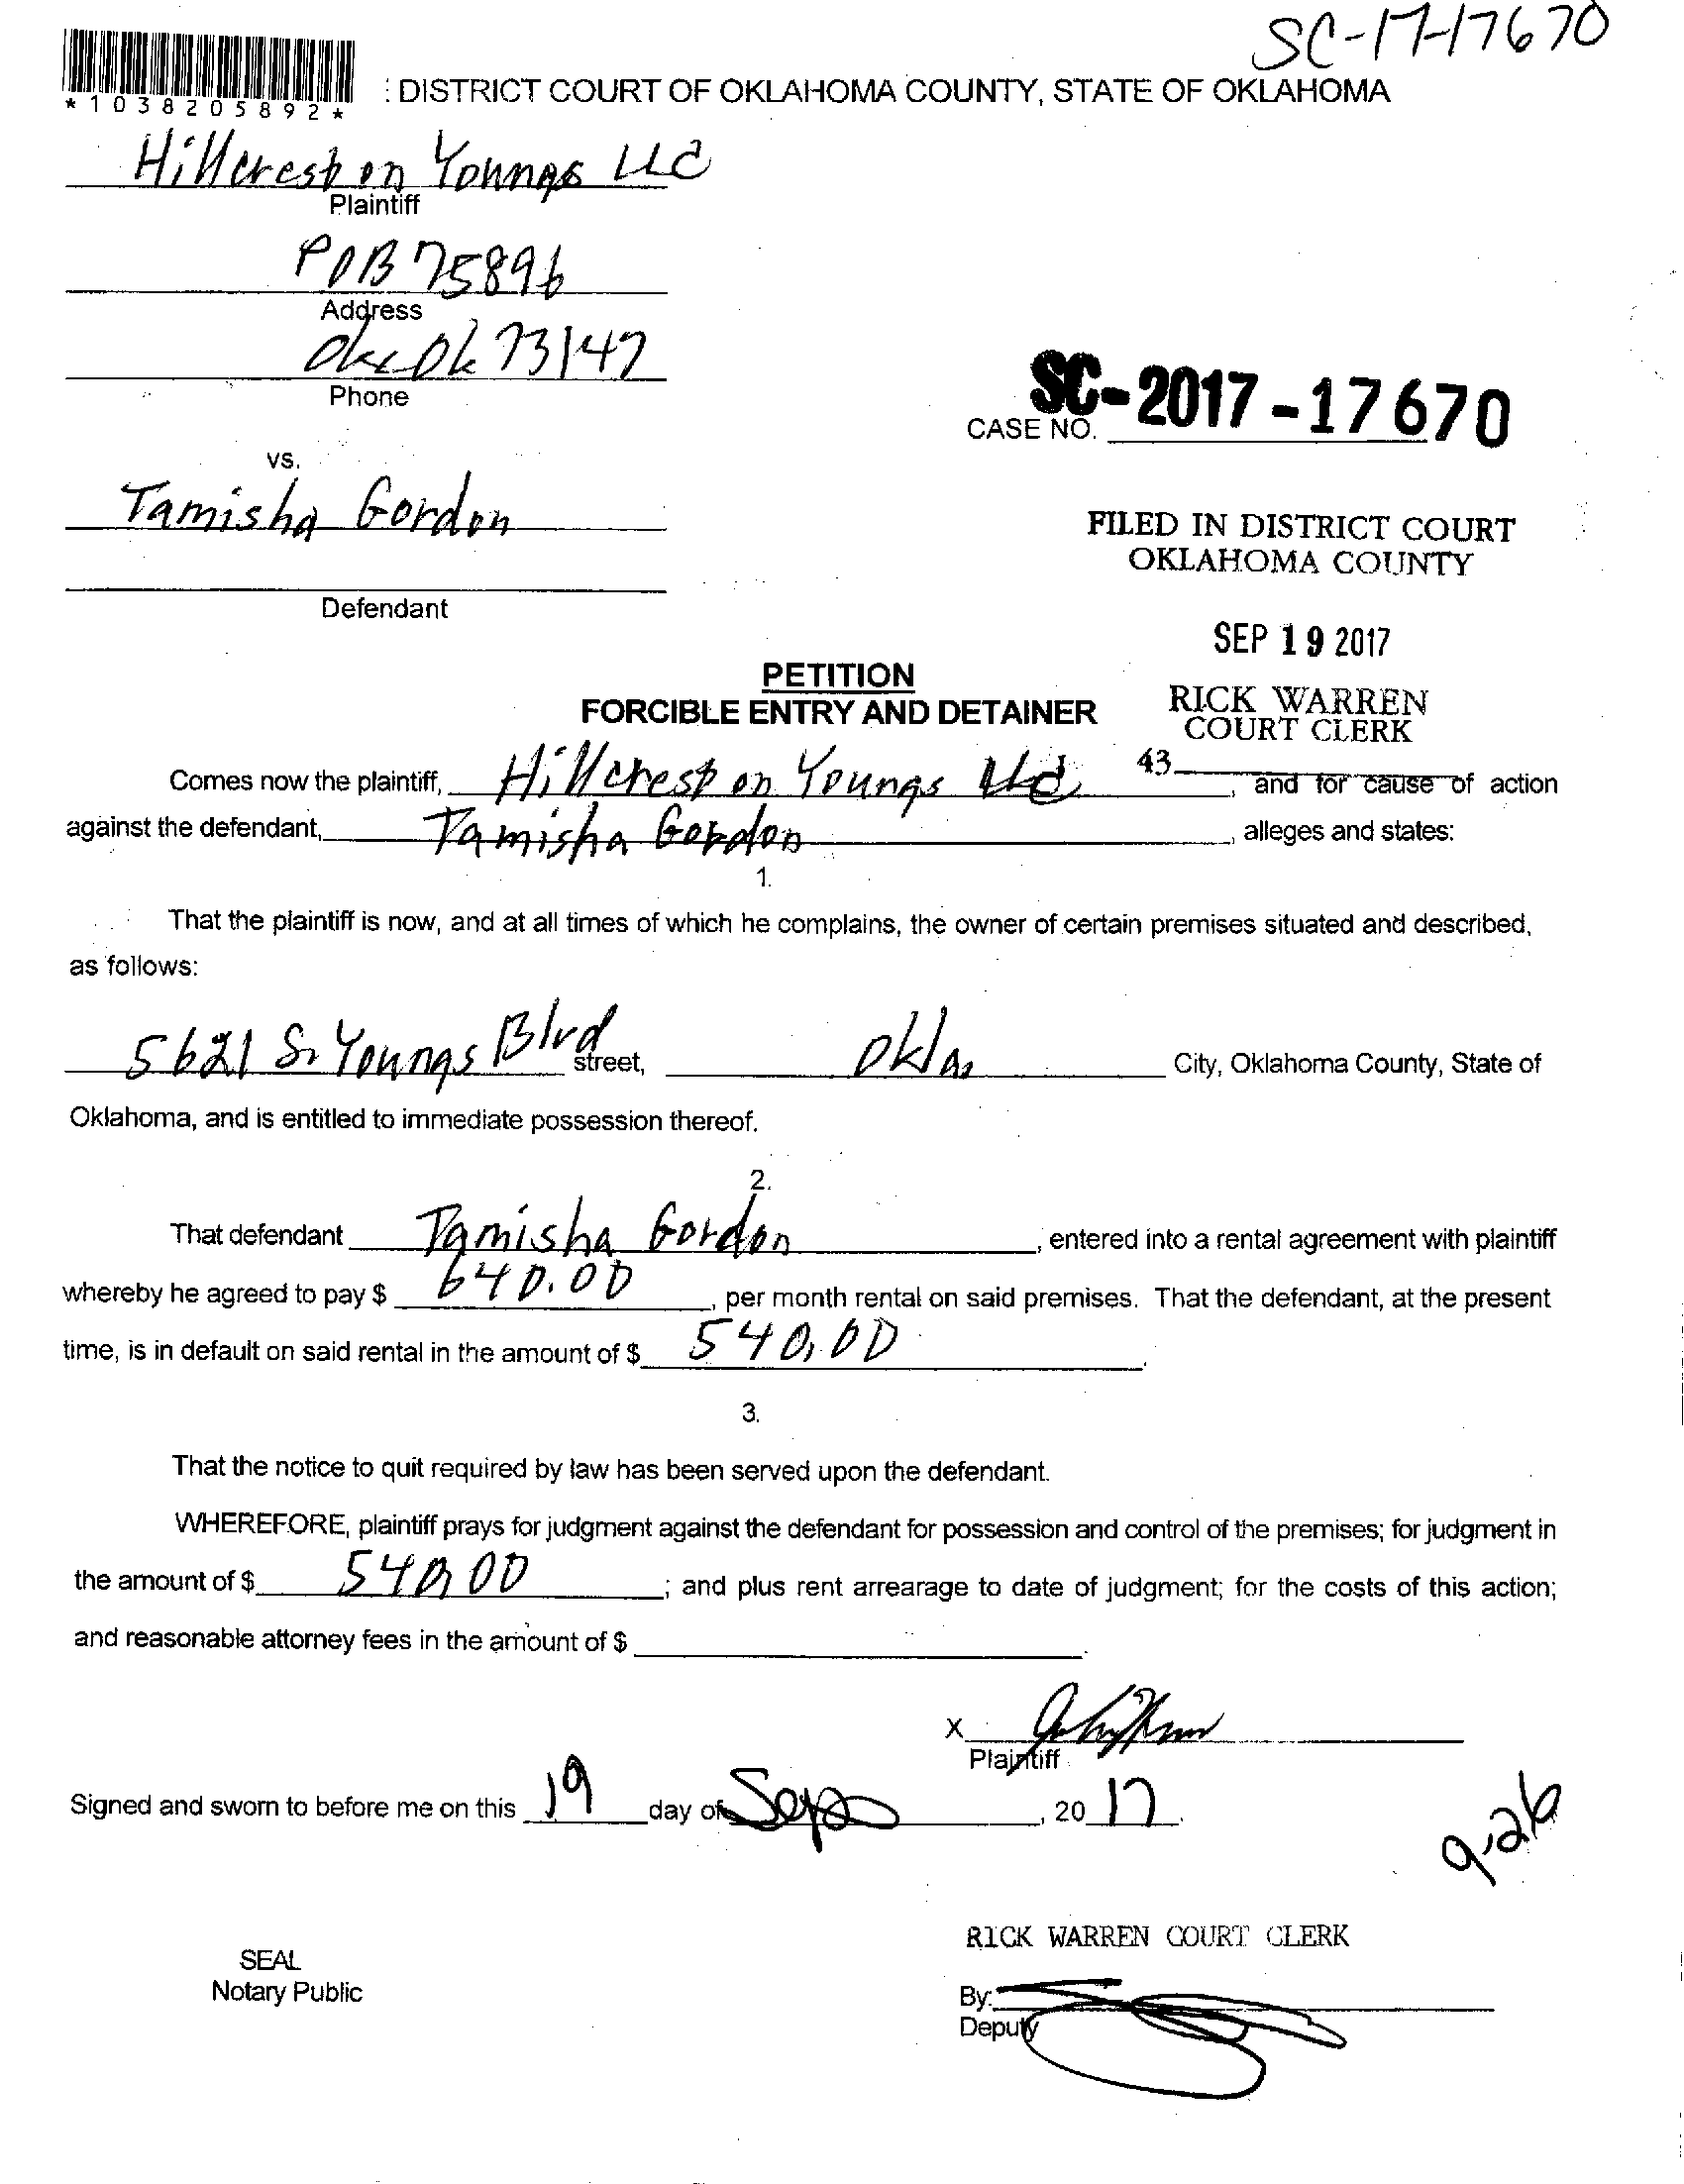 SC-17-17670
*1038205892*
: DISTRICT COURT OF OKLAHOMA COUNTY, STATE OF OKLAHOMA
Hillcrest on Youngs LLC
Plaintiff
POB 75896
Address
Okc Ok 73147
Phone
SC-2017-17670
CASE NO.
vs.
Tamisha Gordon
FILED IN DISTRICT COURT
OKLAHOMA COUNTY
Defendant
SEP 19 2017
PETITION
FORCIBLE ENTRY AND DETAINER
RICK WARREN
COURT CLERK
43
Comes now the plaintiff, Hillcrest on Youngs LLC, and for cause of action
against the defendant, Tamisha Gordon, alleges and states:
1.
That the plaintiff is now, and at all times of which he complains, the owner of certain premises situated and described,
as follows:
5621 S. Youngs Blvd street, Okla. City, Oklahoma County, State of
Oklahoma, and is entitled to immediate possession thereof.
2.
That defendant Tamisha Gordon, entered into a rental agreement with plaintiff
whereby he agreed to pay $ 640.00, per month rental on said premises. That the defendant, at the present
time, is in default on said rental in the amount of $ 540.00.
3.
That the notice to quit required by law has been served upon the defendant.
WHEREFORE, plaintiff prays for judgment against the defendant for possession and control of the premises; for judgment in
the amount of $ 540.00; and plus rent arrearage to date of judgment; for the costs of this action;
and reasonable attorney fees in the amount of $
X
Plaintiff
Signed and sworn to before me on this 19 day of Sept, 2017.
9-26
RICK WARREN COURT CLERK
SEAL
Notary Public
By:
Deputy